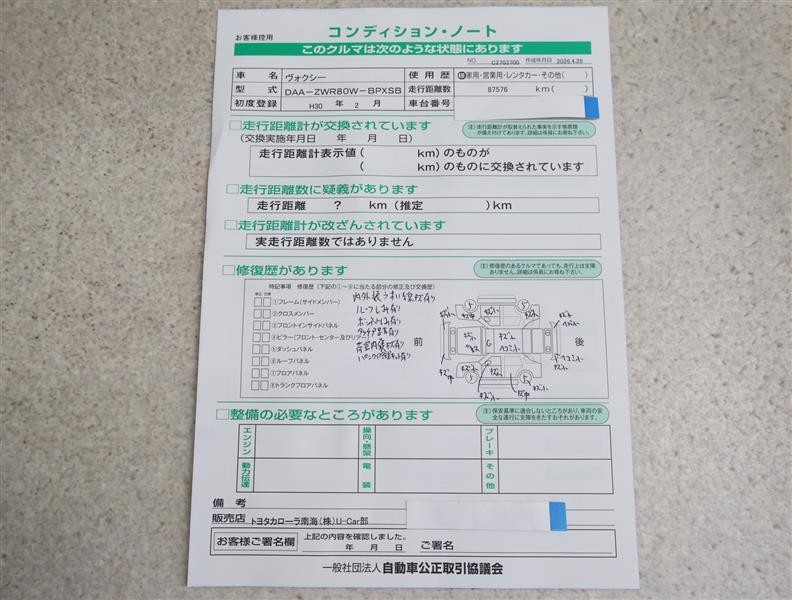 お客様控用
コンディション・ノート
このクルマは次のような状態にあります
NO. C2703700 作成年月日 2026.4.20
車名 ヴォクシー 使用歴 自家用・営業用・レンタカー・その他( )
型式 DAA-ZWR80W-BPXSB 走行距離数 87576 km( )
初度登録 H30 年 2 月 車台番号
□走行距離計が交換されています
(注)走行距離計が取替えられた事実を示す帳票類が備え付けてあります。詳細は係員にお尋ね下さい。
(交換実施年月日 年 月 日)
走行距離計表示値( km)のものが
( km)のものに交換されています
□走行距離数に疑義があります
走行距離 ? km(推定 )km
□走行距離計が改ざんされています
実走行距離数ではありません
□修復歴があります
(注)修復歴のあるクルマであっても、走行上は支障ありません。詳細は係員にお尋ね下さい。
特記事項 修復歴(下記の①~⑧に当たる部分の修正及び交換歴)
修正 交換
①フレーム(サイドメンバー)
②クロスメンバー
③フロントインサイドパネル
④ピラー(フロント・センター及びリアー)
⑤ダッシュパネル
⑥ルーフパネル
⑦フロアパネル
⑧トランクフロアパネル
内外装うすい線キズ有り
ルーフしみ有り
前
後
□整備の必要なところがあります
(注)保安基準に適合しないところがあり、車両の安全な運行に支障をきたすおそれがあります。
エンジン
操向・懸架
ブレーキ
動力伝達
電装
その他
備考
販売店 トヨタカローラ南海(株)U-Car部
お客様ご署名欄
上記の内容を確認しました。
年 月 日 ご署名
一般社団法人 自動車公正取引協議会